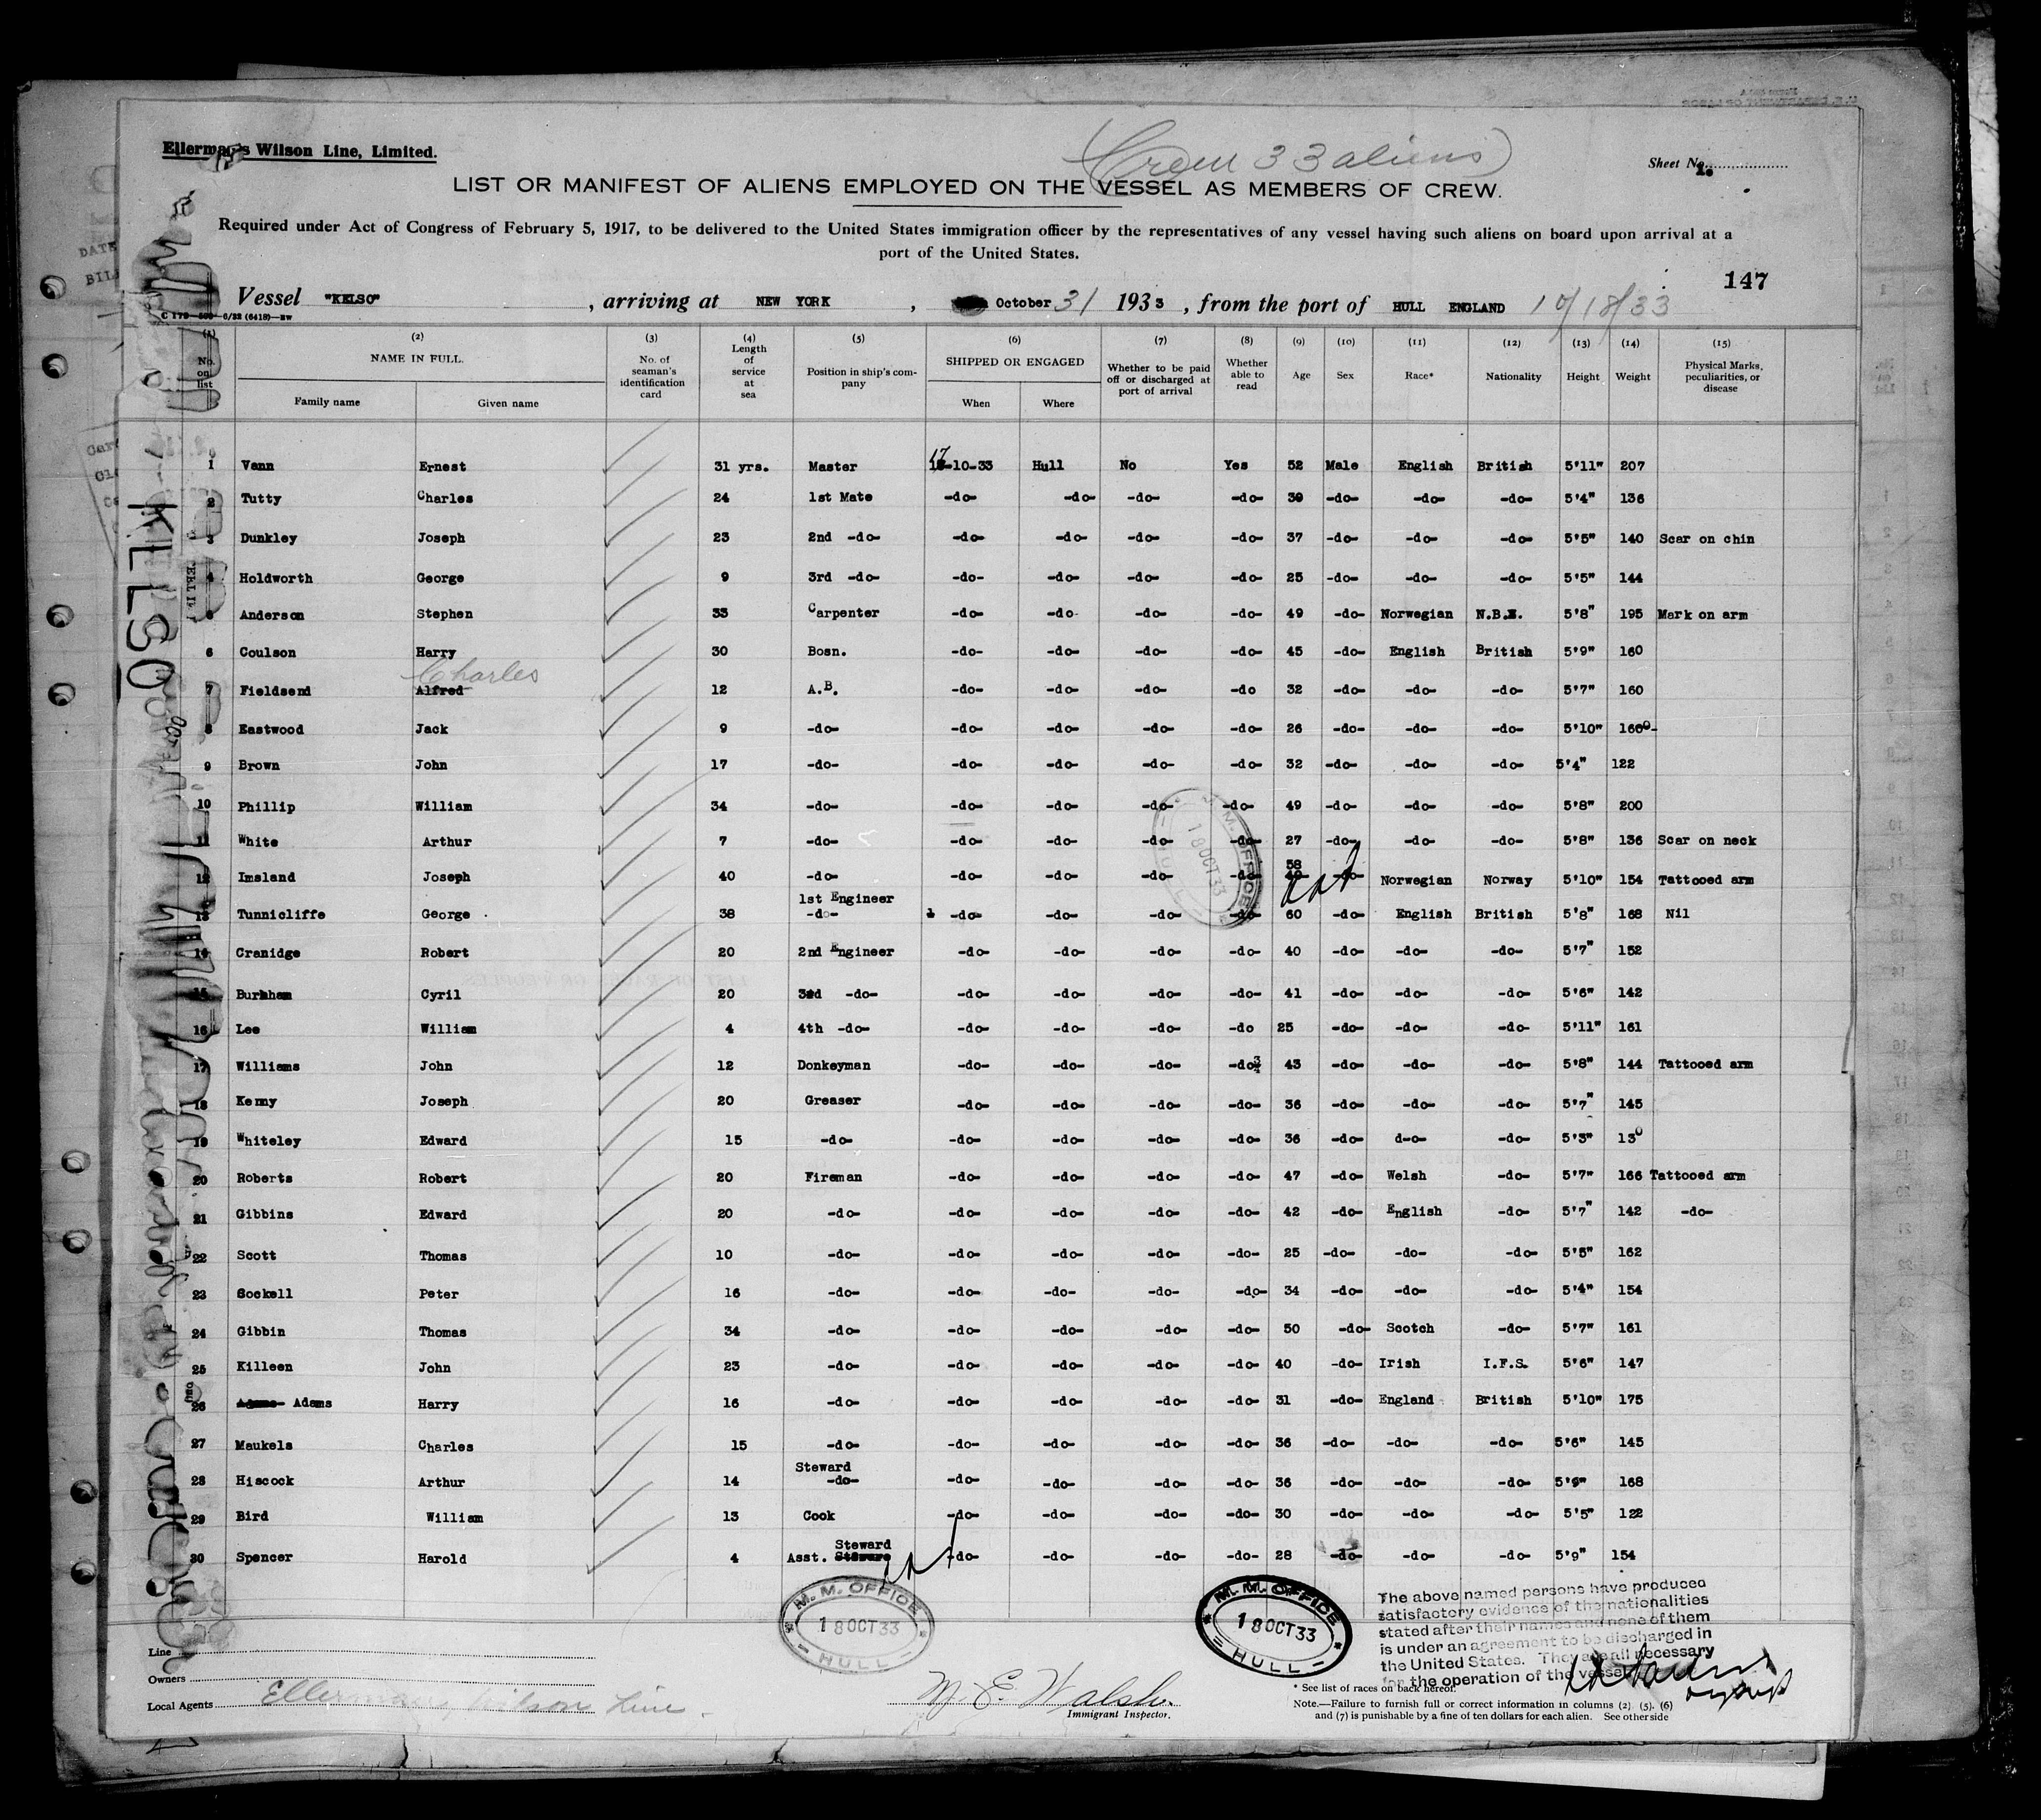 Ellerman's Wilson Line, Limited.
(Crew 33 aliens)
Sheet No. 1.
LIST OR MANIFEST OF ALIENS EMPLOYED ON THE VESSEL AS MEMBERS OF CREW.
Required under Act of Congress of February 5, 1917, to be delivered to the United States immigration officer by the representatives of any vessel having such aliens on board upon arrival at a
port of the United States.
147
Vessel "KELSO", arriving at NEW YORK, October 31 1933, from the port of HULL ENGLAND 10/18/33
(1) No. on list (2) NAME IN FULL. Family name Given name (3) No. of seaman's identification card (4) Length of service at sea (5) Position in ship's company (6) SHIPPED OR ENGAGED When Where (7) Whether to be paid off or discharged at port of arrival (8) Whether able to read (9) Age (10) Sex (11) Race* (12) Nationality (13) Height (14) Weight (15) Physical Marks, peculiarities, or disease
1 Vann Ernest 31 yrs. Master 17-10-33 Hull No Yes 52 Male English British 5'11" 207
2 Tutty Charles 24 1st Mate -do- -do- -do- -do- 39 -do- -do- -do- 5'4" 136
3 Dunkley Joseph 23 2nd -do- -do- -do- -do- -do- 37 -do- -do- -do- 5'5" 140 Scar on chin
4 Holdworth George 9 3rd -do- -do- -do- -do- -do- 25 -do- -do- -do- 5'5" 144
5 Anderson Stephen 33 Carpenter -do- -do- -do- -do- 49 -do- Norwegian N.B.S. 5'8" 195 Mark on arm
6 Coulson Harry 30 Bosn. -do- -do- -do- -do- 45 -do- English British 5'9" 160
Charles
7 Fieldsend Alfred 12 A.B. -do- -do- -do- -do 32 -do- -do- -do- 5'7" 160
8 Eastwood Jack 9 -do- -do- -do- -do- -do- 26 -do- -do- -do- 5'10" 160
9 Brown John 17 -do- -do- -do- -do- -do- 32 -do- -do- -do- 5'4" 122
10 Phillip William 34 -do- -do- -do- -do- -do- 49 -do- -do- -do- 5'8" 200
11 White Arthur 7 -do- -do- -do- -do- -do- 27 -do- -do- -do- 5'8" 136 Scar on neck
12 Imsland Joseph 40 -do- -do- -do- -do- -do- 58 -do- Norwegian Norway 5'10" 154 Tattooed arm
1st Engineer
13 Tunnicliffe George 38 -do- -do- -do- -do- -do- 60 -do- English British 5'8" 168 Nil
14 Cranidge Robert 20 2nd Engineer -do- -do- -do- -do- 40 -do- -do- -do- 5'7" 152
15 Burnham Cyril 20 3rd -do- -do- -do- -do- -do- 41 -do- -do- -do- 5'6" 142
16 Lee William 4 4th -do- -do- -do- -do- -do 25 -do- -do- -do- 5'11" 161
17 Williams John 12 Donkeyman -do- -do- -do- -do- 43 -do- -do- -do- 5'8" 144 Tattooed arm
18 Kenny Joseph 20 Greaser -do- -do- -do- -do- 36 -do- -do- -do- 5'7" 145
19 Whiteley Edward 15 -do- -do- -do- -do- -do- 36 -do- d-o- -do- 5'3" 130
20 Roberts Robert 20 Fireman -do- -do- -do- -do- 47 -do- Welsh -do- 5'7" 166 Tattooed arm
21 Gibbins Edward 20 -do- -do- -do- -do- -do- 42 -do- English -do- 5'7" 142 -do-
22 Scott Thomas 10 -do- -do- -do- -do- -do- 25 -do- -do- -do- 5'5" 162
23 Sockell Peter 16 -do- -do- -do- -do- -do- 34 -do- -do- -do- 5'4" 154
24 Gibbin Thomas 34 -do- -do- -do- -do- -do- 50 -do- Scotch -do- 5'7" 161
25 Killeen John 23 -do- -do- -do- -do- -do- 40 -do- Irish I.F.S. 5'6" 147
26 Adams Adams Harry 16 -do- -do- -do- -do- -do- 31 -do- England British 5'10" 175
27 Maukels Charles 15 -do- -do- -do- -do- -do- 36 -do- -do- -do- 5'6" 145
Steward
28 Hiscock Arthur 14 -do- -do- -do- -do- -do- 36 -do- -do- -do- 5'9" 168
29 Bird William 13 Cook -do- -do- -do- -do- 30 -do- -do- -do- 5'5" 122
Steward
30 Spencer Harold 4 Asst. -do- -do- -do- -do- 28 -do- -do- -do- 5'9" 154
M. M. OFFICE
18 OCT 33
HULL
M. M. OFFICE
18 OCT 33
HULL
M. M. OFFICE
18 OCT 33
HULL
The above named persons have produced
satisfactory evidence of the nationalities
stated after their names and none of them
is under an agreement to be discharged in
the United States. They are all necessary
for the operation of the vessel.
Line
Owners
Local Agents Ellermans Wilson Line.
M. E. Walsh.
Immigrant Inspector.
* See list of races on back hereof.
Note.—Failure to furnish full or correct information in columns (2), (5), (6)
and (7) is punishable by a fine of ten dollars for each alien. See other side
KELSO